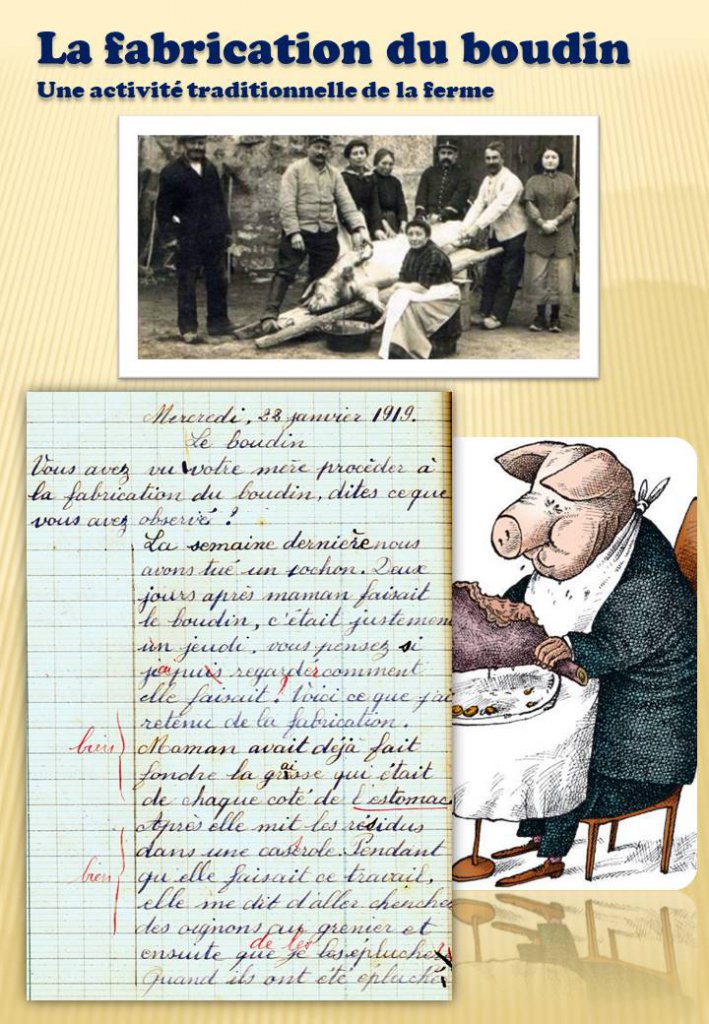 La fabrication du boudin
Une activité traditionnelle de la ferme
Mercredi, 22 janvier 1919.
Le boudin
Vous avez vu votre mère procéder à
la fabrication du boudin, dites ce que
vous avez observé ?
La semaine dernière nous
avons tué un cochon. Deux
jours après maman faisait
le boudin, c'était justement
un jeudi. vous pensez si
j'ai regardé comment
elle faisait ! Voici ce que j'ai
retenu de la fabrication.
bien Maman avait déjà fait
fondre la graisse qui était
de chaque coté de l'estomac
Après elle mit les résidus
dans une casserole. Pendant
bien qu'elle faisait ce travail,
elle me dit d'aller chercher
des oignons au grenier et
de les
ensuite que je les épluche
Quand ils ont été épluché